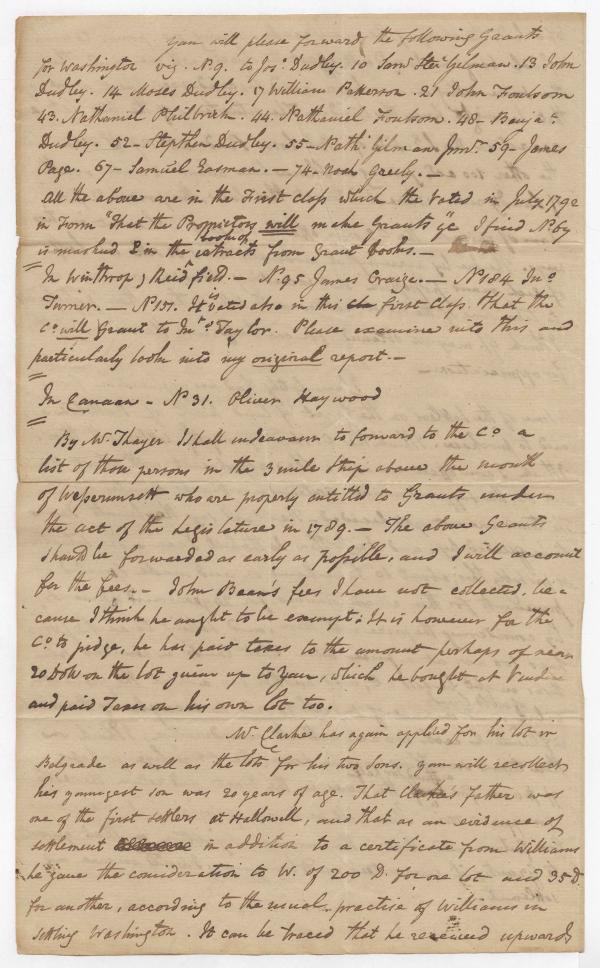 you will please forward the following Grants
for Washington viz. N. 9. to Jos. Dudley. 10 Sam. Stev. Gilman. 13 John
Dudley. 14 Moses Dudley. 17 William Paterson. 21 John Foulsom
43. Nathaniel Philbrick. 44. Nathaniel Foulsom. 48- Benja.
Dudley. 52- Stepthen Dudley. 55- Nath. Gilman Junr. 59- James
Page. 67- Samuel Easman. - 74- Noah Greely. -
All the above are in the First class which the voted in July 1792
in Form "That the Proprietors will make Grants &c I find No. 69
is marked in the book of extracts from Grant books. -
In Winthrop, Readfield. - No. 95 James Craige. - No. 184 Jno.
Turner. - No. 151. It is voted also in this first class. that the
Co. will Grant to Jno. Taylor. Please examine into this and
particularly look into my original report. -
In Canaan - No. 31. Oliver Haywood
By Mr. Thayer I shall endeavour to forward to the Co. a
list of those persons in the 3 mile strip above the mouth
of Wesserunsett who are properly entitled to Grants under
the act of the Legislature in 1789. - The above Grants
should be forwarded as early as possible, and I will account
for the fees. - John Bean's fees I have not collected, be-
cause I think he ought to be exempt; It is however for the
Co. to judge, he has paid taxes to the amount perhaps of near
20 Dols on the lot given up to you, which he bought at Vendue
and paid Taxes on his own lot too.
Mr. Clarke has again applied for his lot in
Belgrade as well as the lots for his two sons. you will recollect
his youngest son was 20 years of age. That Clarke's father was
one of the first settlers at Hallowell, and that as an evidence of
settlement in addition to a certificate from Williams
he gave the consideration to W. of 200 D. for one lot and 35 D.
for another, according to the usual practise of Williams in
settling Washington. It can be traced that he received upwards